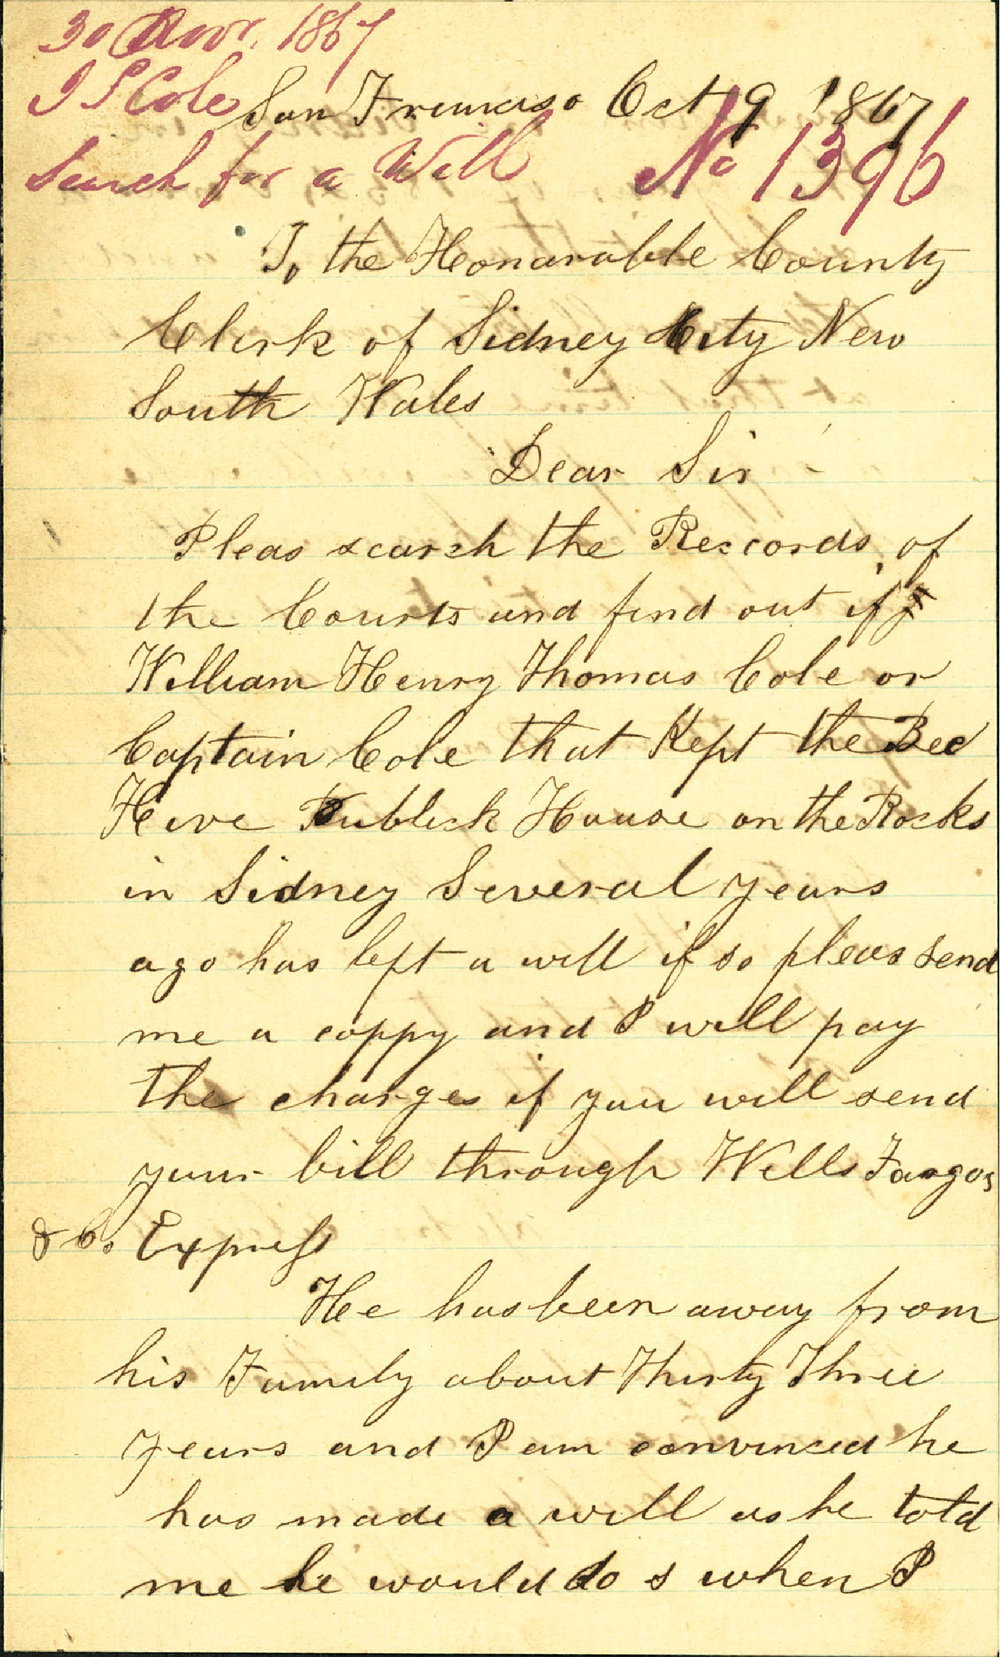 30 Novr. 1867
J S Cole
San Francisco Oct 9 1867
Search for a Will
No 1396
To the Honarable County
Clerk of Sidney City New
South Wales
Dear Sir
Pleas search the Reccords of
the Courts and find out if
William Henry Thomas Cole or
Captain Cole that Kept the Bee
Hive Publick House on the Rocks
in Sidney Several years
ago has left a will if so pleas send
me a coppy and I will pay
the charges if you will send
your bill through Wells Fargos
& Co. Express
He has been away from
his Family about Thirty Three
years and I am convinced he
has made a will as he told
me he would do s when I